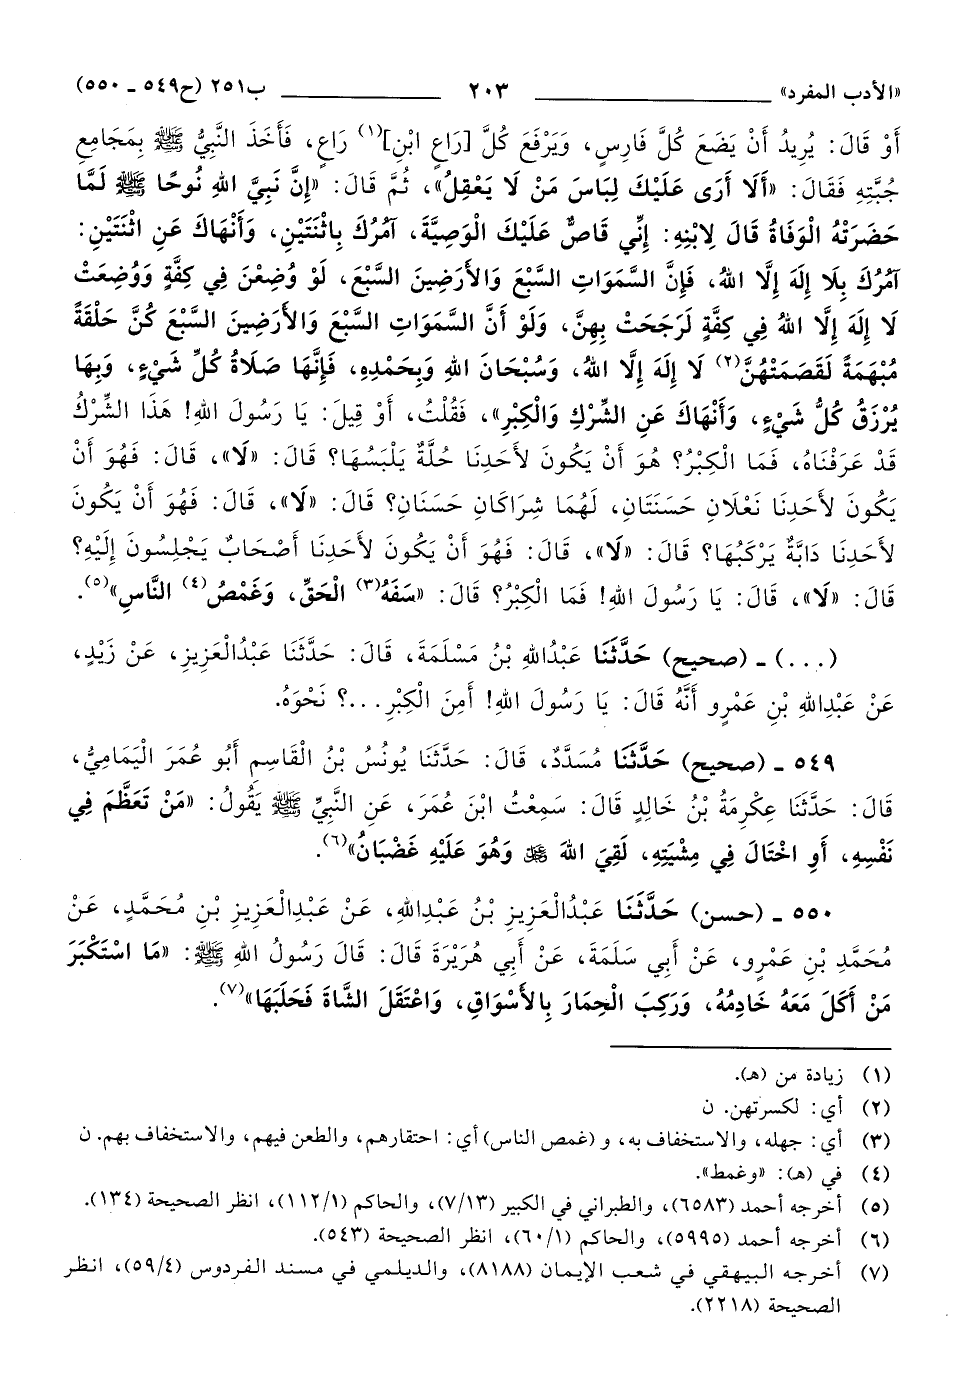 «الأدب المفرد» ٢٠٣ ب٢٥١ (ح٥٤٩ ـ ٥٥٠)
أَوْ قَالَ: يُرِيدُ أَنْ يَضَعَ كُلَّ فَارِسٍ، وَيَرْفَعَ كُلَّ [رَاعٍ ابْنِ](١) رَاعٍ، فَأَخَذَ النَّبِيُّ ﷺ بِمَجَامِعِ
جُبَّتِهِ فَقَالَ: «أَلَا أَرَى عَلَيْكَ لِبَاسَ مَنْ لَا يَعْقِلُ»، ثُمَّ قَالَ: «إِنَّ نَبِيَّ اللهِ نُوحًا ﷺ لَمَّا
حَضَرَتْهُ الْوَفَاةُ قَالَ لِابْنِهِ: إِنِّي قَاصٌّ عَلَيْكَ الْوَصِيَّةَ، آمُرُكَ بِاثْنَتَيْنِ، وَأَنْهَاكَ عَنِ اثْنَتَيْنِ:
آمُرُكَ بِلَا إِلَهَ إِلَّا اللهُ، فَإِنَّ السَّمَوَاتِ السَّبْعَ وَالأَرَضِينَ السَّبْعَ، لَوْ وُضِعْنَ فِي كِفَّةٍ وَوُضِعَتْ
لَا إِلَهَ إِلَّا اللهُ فِي كِفَّةٍ لَرَجَحَتْ بِهِنَّ، وَلَوْ أَنَّ السَّمَوَاتِ السَّبْعَ وَالأَرَضِينَ السَّبْعَ كُنَّ حَلْقَةً
مُبْهَمَةً لَقَصَمَتْهُنَّ(٢) لَا إِلَهَ إِلَّا اللهُ، وَسُبْحَانَ اللهِ وَبِحَمْدِهِ، فَإِنَّهَا صَلَاةُ كُلِّ شَيْءٍ، وَبِهَا
يُرْزَقُ كُلُّ شَيْءٍ، وَأَنْهَاكَ عَنِ الشِّرْكِ وَالْكِبْرِ»، فَقُلْتُ، أَوْ قِيلَ: يَا رَسُولَ اللهِ! هَذَا الشِّرْكُ
قَدْ عَرَفْنَاهُ، فَمَا الْكِبْرُ؟ هُوَ أَنْ يَكُونَ لأَحَدِنَا حُلَّةٌ يَلْبَسُهَا؟ قَالَ: «لَا»، قَالَ: فَهُوَ أَنْ
يَكُونَ لأَحَدِنَا نَعْلَانِ حَسَنَتَانِ، لَهُمَا شِرَاكَانِ حَسَنَانِ؟ قَالَ: «لَا»، قَالَ: فَهُوَ أَنْ يَكُونَ
لأَحَدِنَا دَابَّةٌ يَرْكَبُهَا؟ قَالَ: «لَا»، قَالَ: فَهُوَ أَنْ يَكُونَ لأَحَدِنَا أَصْحَابٌ يَجْلِسُونَ إِلَيْهِ؟
قَالَ: «لَا»، قَالَ: يَا رَسُولَ اللهِ! فَمَا الْكِبْرُ؟ قَالَ: «سَفَهُ(٣) الْحَقِّ، وَغَمْصُ(٤) النَّاسِ»(٥).
(...) ـ (صحيح) حَدَّثَنَا عَبْدُاللهِ بْنُ مَسْلَمَةَ، قَالَ: حَدَّثَنَا عَبْدُالْعَزِيزِ، عَنْ زَيْدٍ،
عَنْ عَبْدِاللهِ بْنِ عَمْرٍو أَنَّهُ قَالَ: يَا رَسُولَ اللهِ! أَمِنَ الْكِبْرِ...؟ نَحْوَهُ.
٥٤٩ ـ (صحيح) حَدَّثَنَا مُسَدَّدٌ، قَالَ: حَدَّثَنَا يُونُسُ بْنُ الْقَاسِمِ أَبُو عُمَرَ الْيَمَامِيُّ،
قَالَ: حَدَّثَنَا عِكْرِمَةُ بْنُ خَالِدٍ قَالَ: سَمِعْتُ ابْنَ عُمَرَ، عَنِ النَّبِيِّ ﷺ يَقُولُ: «مَنْ تَعَظَّمَ فِي
نَفْسِهِ، أَوِ اخْتَالَ فِي مِشْيَتِهِ، لَقِيَ اللهَ ﷻ وَهُوَ عَلَيْهِ غَضْبَانُ»(٦).
٥٥٠ ـ (حسن) حَدَّثَنَا عَبْدُالْعَزِيزِ بْنُ عَبْدِاللهِ، عَنْ عَبْدِالْعَزِيزِ بْنِ مُحَمَّدٍ، عَنْ
مُحَمَّدِ بْنِ عَمْرٍو، عَنْ أَبِي سَلَمَةَ، عَنْ أَبِي هُرَيْرَةَ قَالَ: قَالَ رَسُولُ اللهِ ﷺ: «مَا اسْتَكْبَرَ
مَنْ أَكَلَ مَعَهُ خَادِمُهُ، وَرَكِبَ الْحِمَارَ بِالأَسْوَاقِ، وَاعْتَقَلَ الشَّاةَ فَحَلَبَهَا»(٧).
(١) زيادة من (هـ).
(٢) أي: لكسرتهن. ن
(٣) أي: جهله، والاستخفاف به، و (غمص الناس) أي: احتقارهم، والطعن فيهم، والاستخفاف بهم. ن
(٤) في (هـ): «وغمط».
(٥) أخرجه أحمد (٦٥٨٣)، والطبراني في الكبير (٧/١٣)، والحاكم (١١٢/١)، انظر الصحيحة (١٣٤).
(٦) أخرجه أحمد (٥٩٩٥)، والحاكم (٦٠/١)، انظر الصحيحة (٥٤٣).
(٧) أخرجه البيهقي في شعب الإيمان (٨١٨٨)، والديلمي في مسند الفردوس (٥٩/٤)، انظر
الصحيحة (٢٢١٨).